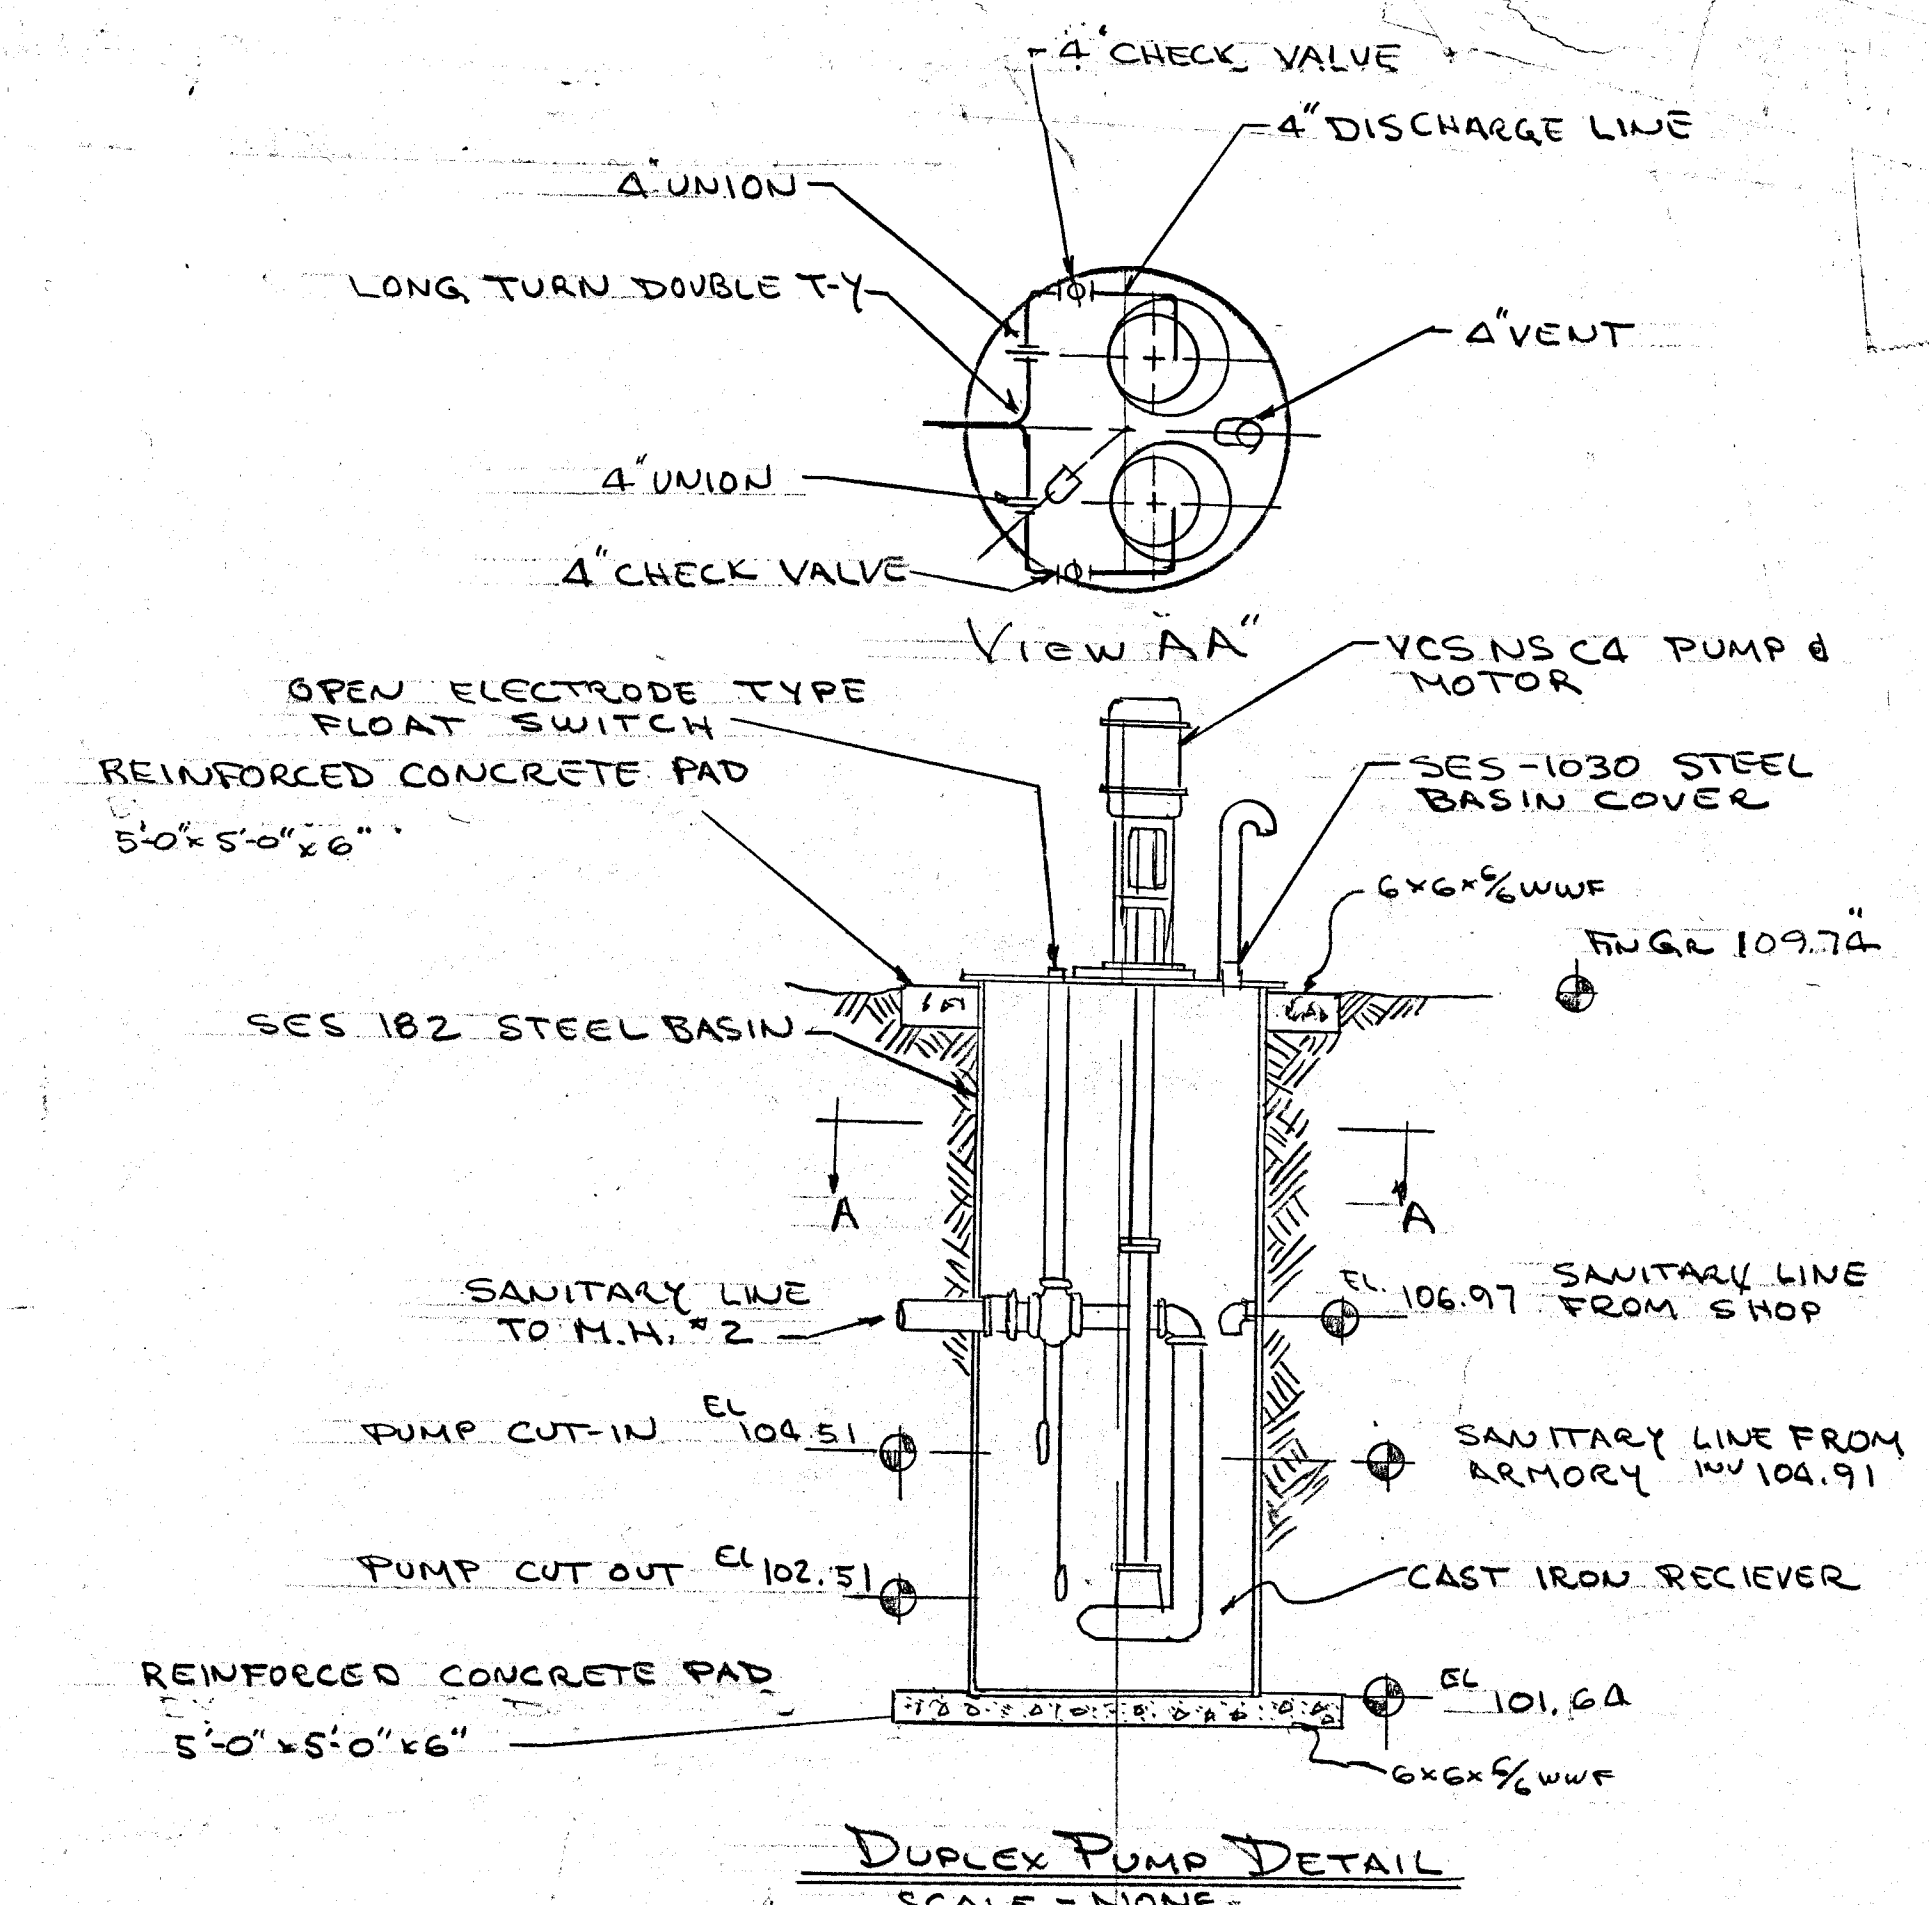 4" CHECK VALVE
4" DISCHARGE LINE
4" UNION
LONG TURN DOUBLE T-Y
4" VENT
4" UNION
4" CHECK VALVE
VIEW "AA"
VCS NS C4 PUMP &
MOTOR
OPEN ELECTRODE TYPE
FLOAT SWITCH
REINFORCED CONCRETE PAD
5'-0" x 5'-0" x 6"
SES-1030 STEEL
BASIN COVER
6x6x6/6 WWF
FIN GR 109.74"
SES 182 STEEL BASIN
A
A
SANITARY LINE
TO M.H. #2
EL. 106.97
SANITARY LINE
FROM SHOP
PUMP CUT-IN EL 104.51
SANITARY LINE FROM
ARMORY INV 104.91
PUMP CUT OUT EL 102.51
CAST IRON RECIEVER
REINFORCED CONCRETE PAD
5'-0" x 5'-0" x 6"
EL 101.64
6x6x6/6 WWF
DUPLEX PUMP DETAIL
SCALE - NONE